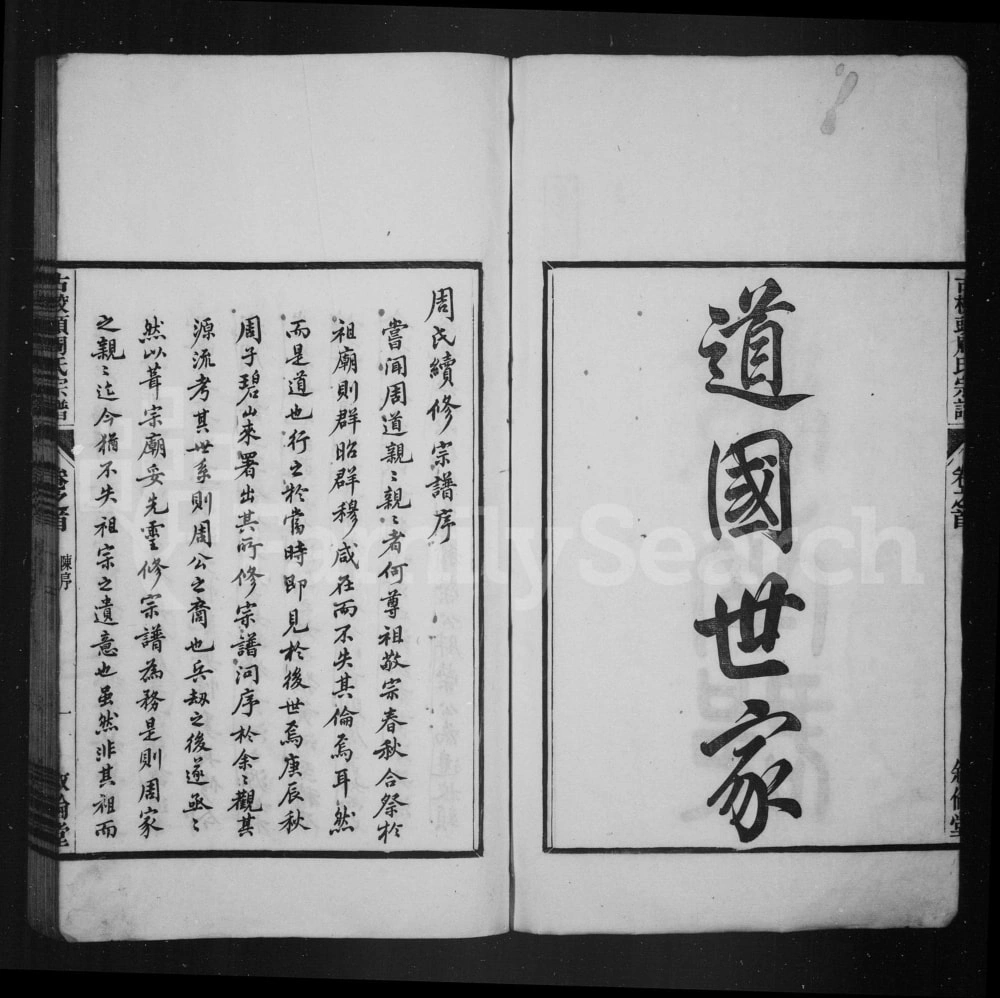 道國世家
古校頭周氏宗譜
卷之首
敘倫堂
周氏續修宗譜序
嘗聞周道親〻親〻者何尊祖敬宗春秋合祭於
祖廟則群昭群穆咸在而不失其倫焉耳然
而是道也行之於當時即見於後世焉庚辰秋
周子碧山來署出其所修宗譜問序於余〻觀其
源流考其世系則周公之裔也兵劫之後遂亟〻
然以葺宗廟妥先靈修宗譜為務是則周家
之親〻迄今猶不失祖宗之遺意也虽然非其祖而
古校頭周氏宗譜
卷之首
陳序
一
敘倫堂
FamilySearch